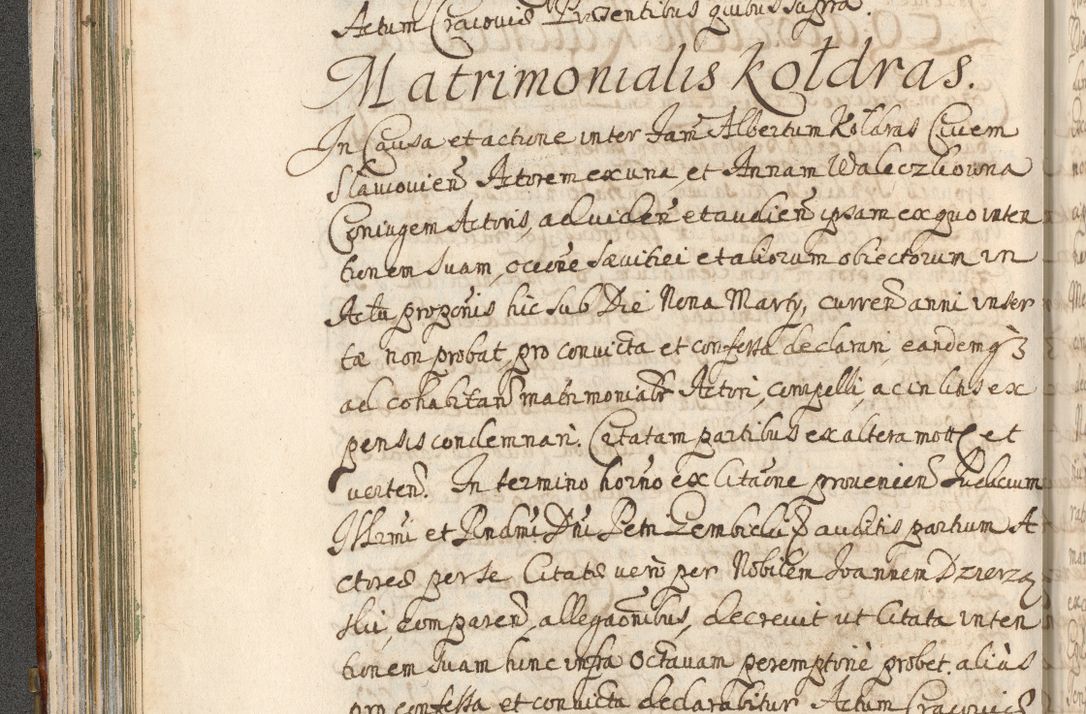 Actum Cracoviæ Præsentibus quibus supra.
Matrimonialis Kołdras.
In Causa et actione inter Fam Albertum Kołdras Civem
Slavovien Actorem ex una, et Annam Waleczkowna
Coniugem Actoris, ad viden et audien ipsam ex quo inten
tionem suam, occõne sævitiei et aliorum obiectorum in
Actu propõnis hic sub Die Nona Martij, curren anni inser
tæ non probat, pro convicta et confessa declarari, eandemq3
ad cohabitan matrimonialr Actori, compelli, ac in litis ex
pensis condemnari. Citatam partibus ex altera mott et
verten. In termino horno ex Citatõne provenien Judicium
Illrmi et Rndmi Dni Petri Gembicki &c auditis partium A
ctoreæ per se Citatæ vero per Nobilem Joannem Dzierza
ski, comparen, allegaõnibus, decrevit ut Citata inten
tionem suam hinc infra Octavam peremptorie probet. aliàs
pro confessa et convicta declarabitur Actum Cracoviæ